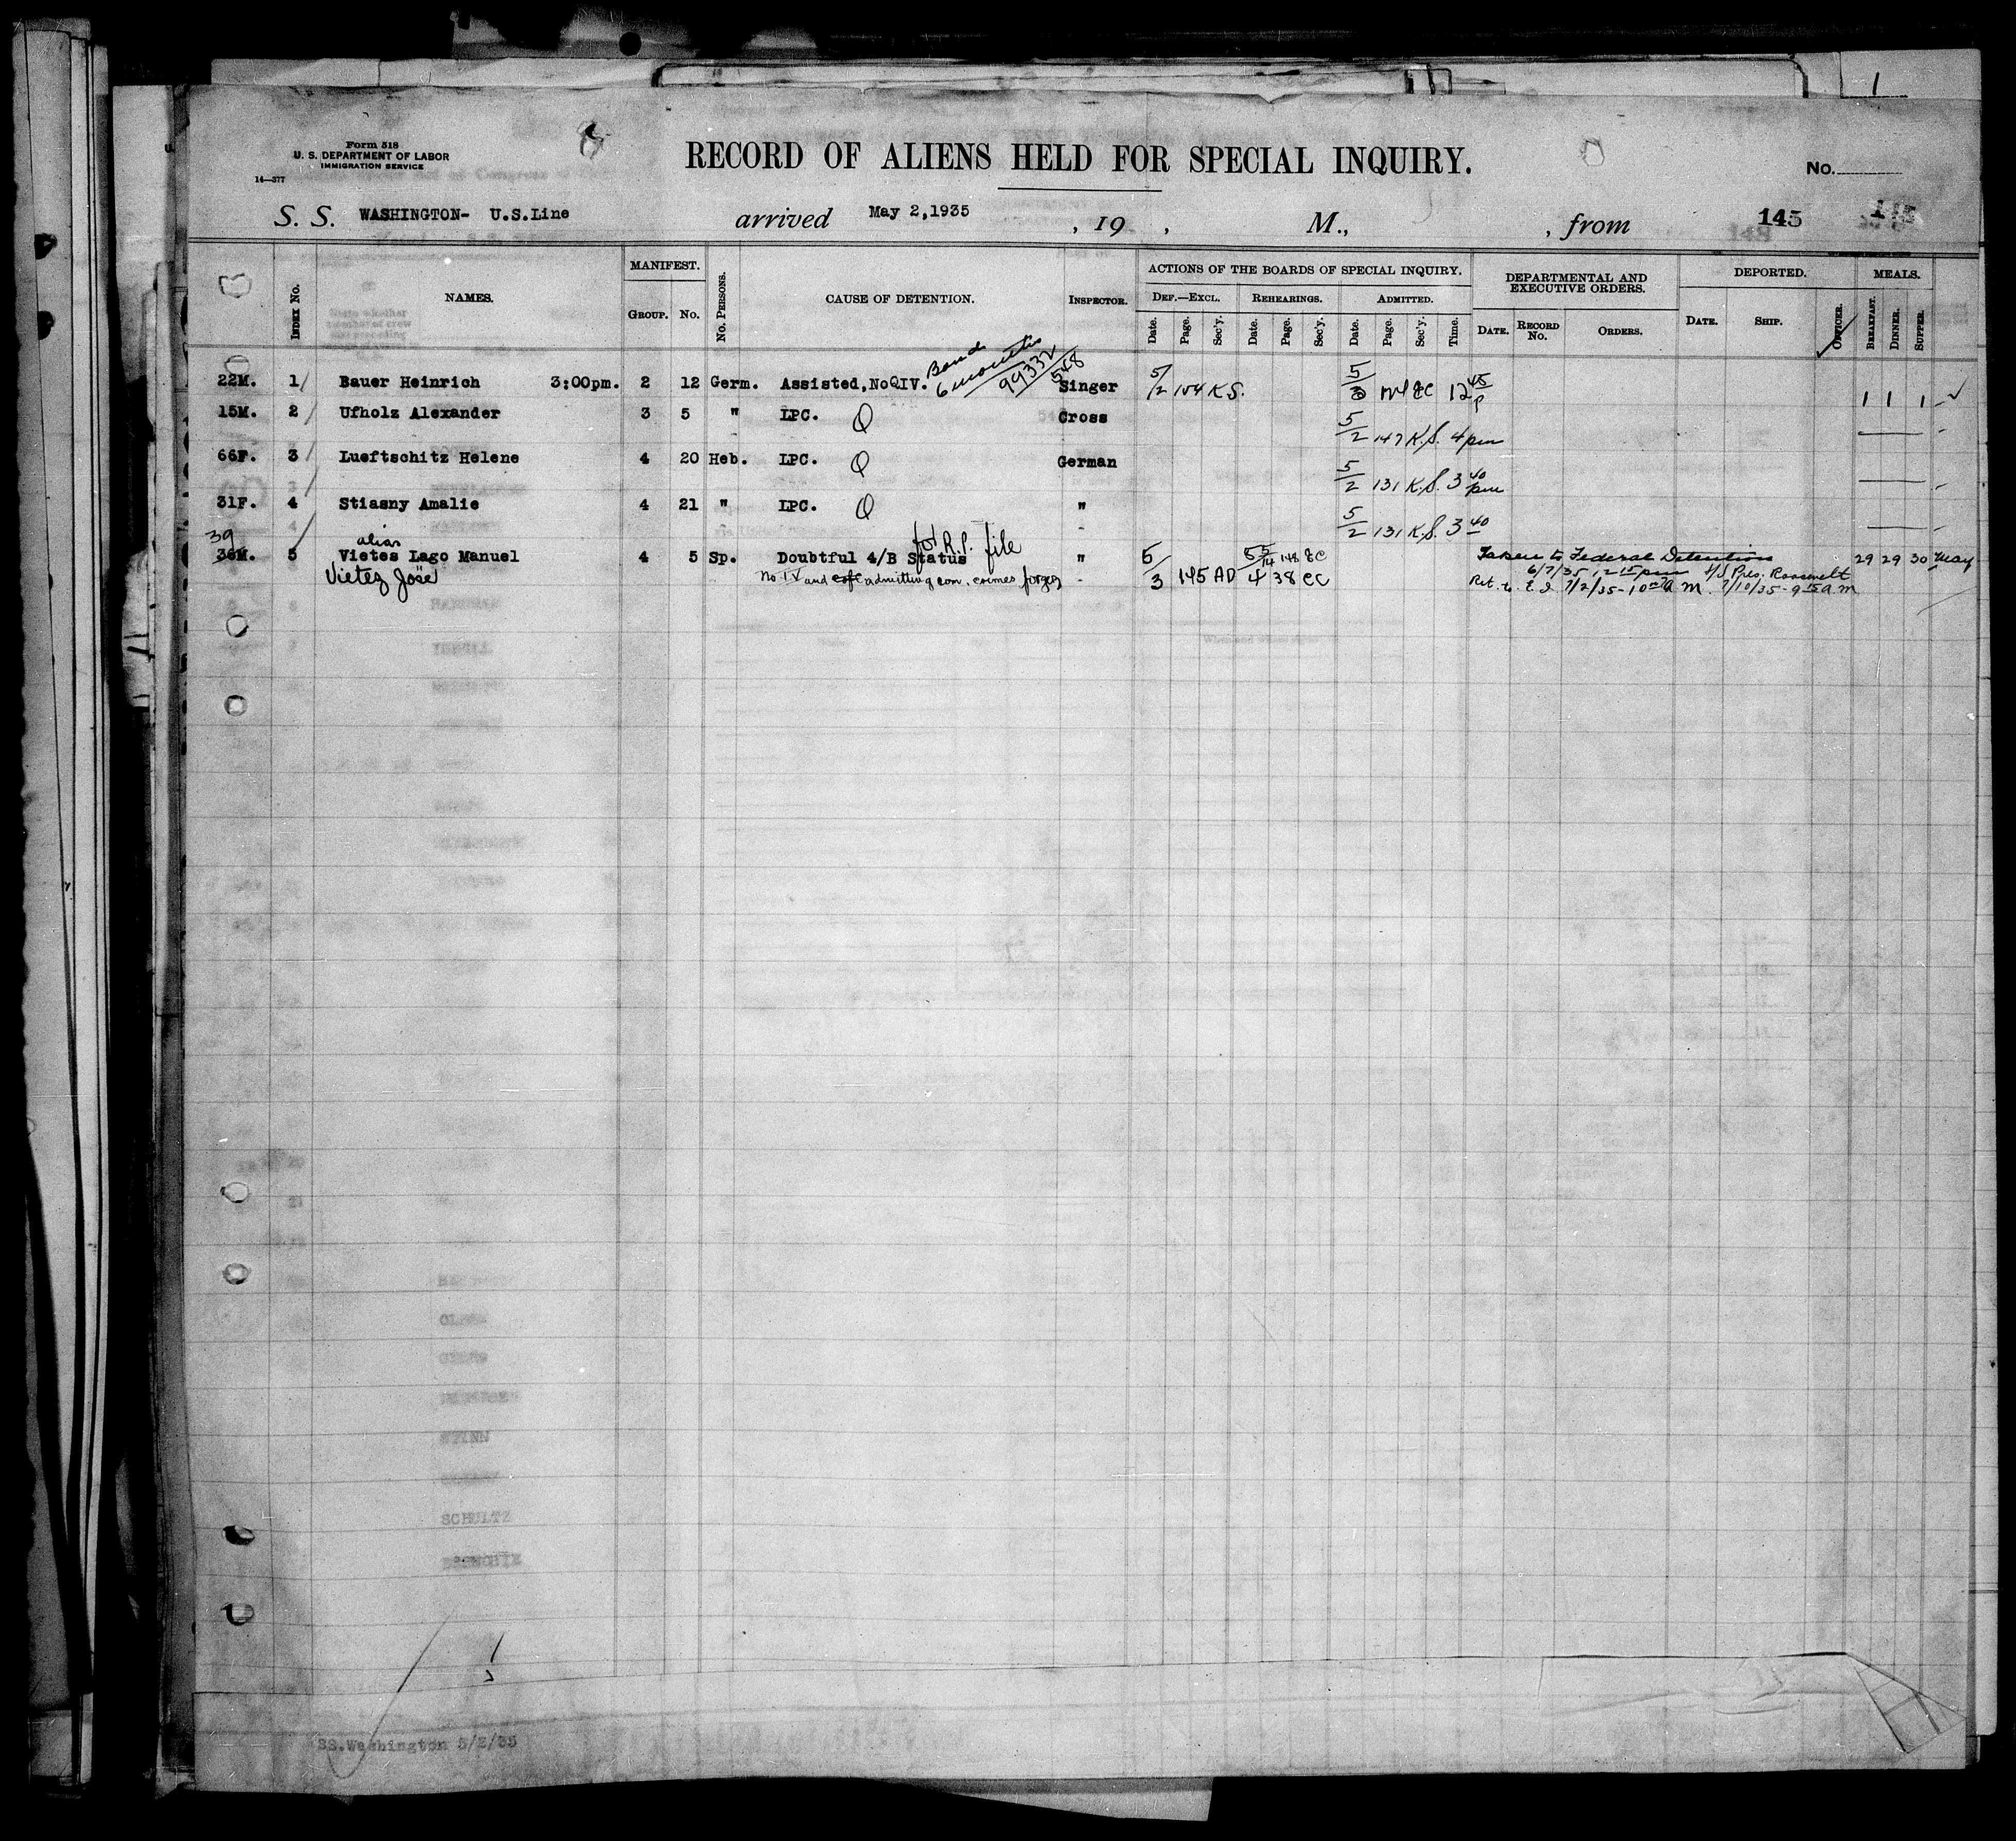 1
Form 518
U. S. DEPARTMENT OF LABOR
IMMIGRATION SERVICE
14—377
RECORD OF ALIENS HELD FOR SPECIAL INQUIRY.
No.
S. S. WASHINGTON- U.S.Line arrived May 2,1935 , 19 , M., , from 145
INDEX No. NAMES. MANIFEST. GROUP. No. No. PERSONS. CAUSE OF DETENTION. INSPECTOR.
ACTIONS OF THE BOARDS OF SPECIAL INQUIRY.
DEF.—EXCL. REHEARINGS. ADMITTED.
Date. Page. Sec'y. Date. Page. Sec'y. Date. Page. Sec'y. Time.
DEPARTMENTAL AND EXECUTIVE ORDERS.
DATE. RECORD No. ORDERS.
DEPORTED.
DATE. SHIP. OFFICER.
MEALS.
BREAKFAST. DINNER. SUPPER.
Bond 6 months 99332/548
22M. 1 Bauer Heinrich 3:00pm. 2 12 Germ. Assisted,NoQIV. Singer 5/2 104 K S. 5/3 EC 12 45 P 1 1 1
15M. 2 Ufholz Alexander 3 5 " LPC. Q Cross 5/2 147 K.S. 4 pm
66F. 3 Lueftschitz Helene 4 20 Heb. LPC. Q German 5/2 131 K.S. 3 40 pm
31F. 4 Stiasny Amalie 4 21 " LPC. Q " 5/2 131 K.S. 3 40
39 alias R.P. file
36M. 5 Vietes Lago Manuel 4 5 Sp. Doubtful 4/B Status " 5/3 145 AD 5/14 148 EC Taken to Federal Detention 29 29 30 May
Vietez José No IV and admitting com. crimes 4 38 EC 6/7/35, 2 15 pm S/S Pres. Roosevelt
Ret. to E I 7/2/35-10 a m. 7/10/35-9 15 a.m
SCHULTZ
SS.Washington 5/2/35